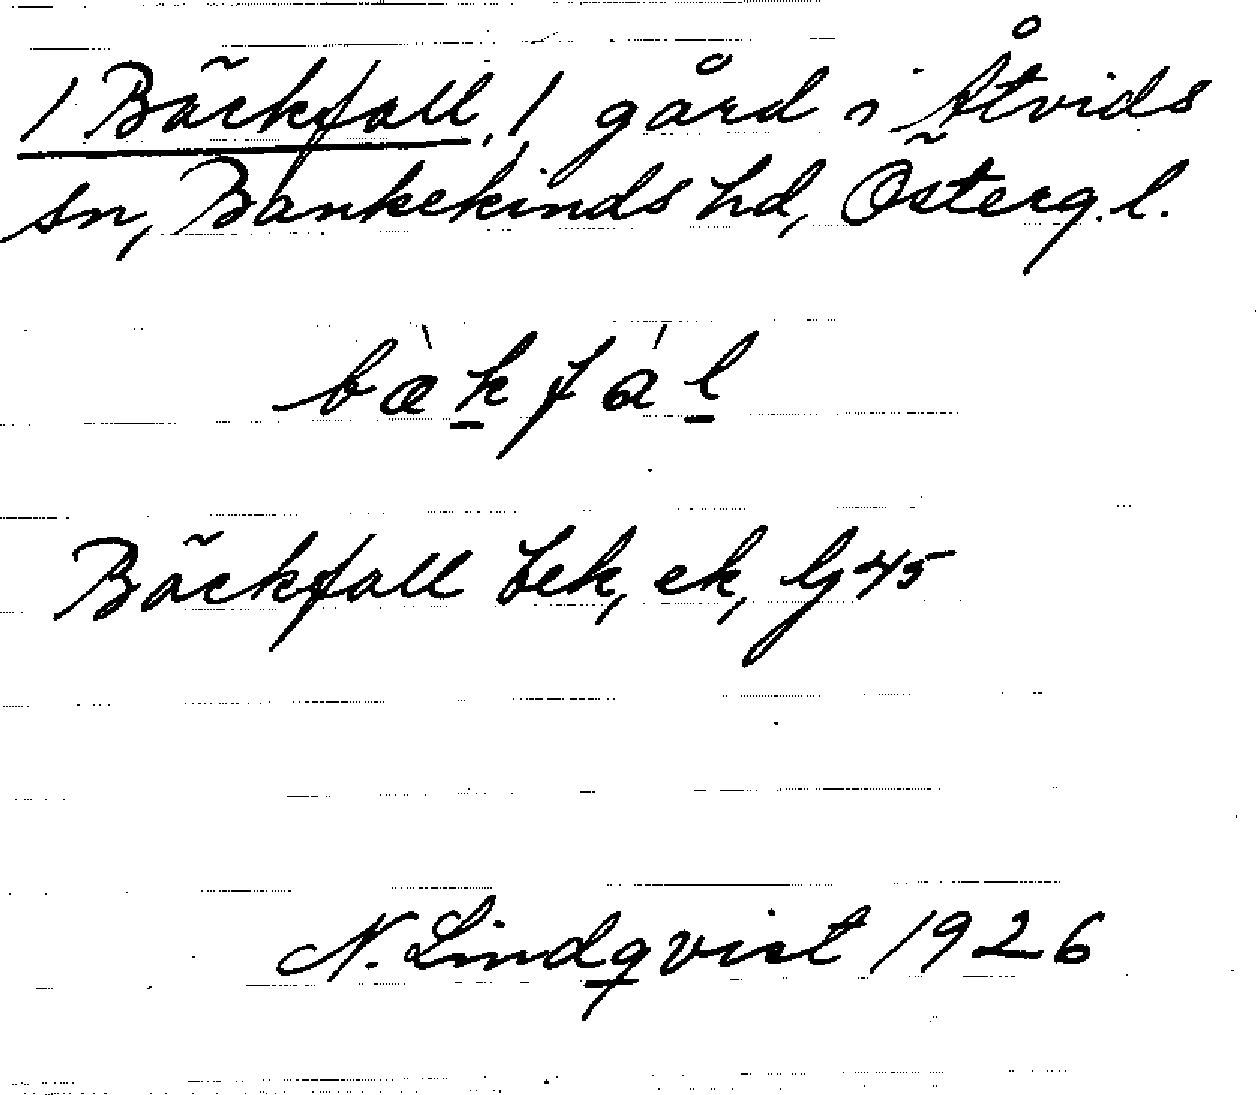 / Bäckfall, / gård i Åtvids
sn, Bankekinds hd, Österg. l.
bæ̀kfál
Bäckfall tek, ek, lj 45
N. Lindqvist 1926